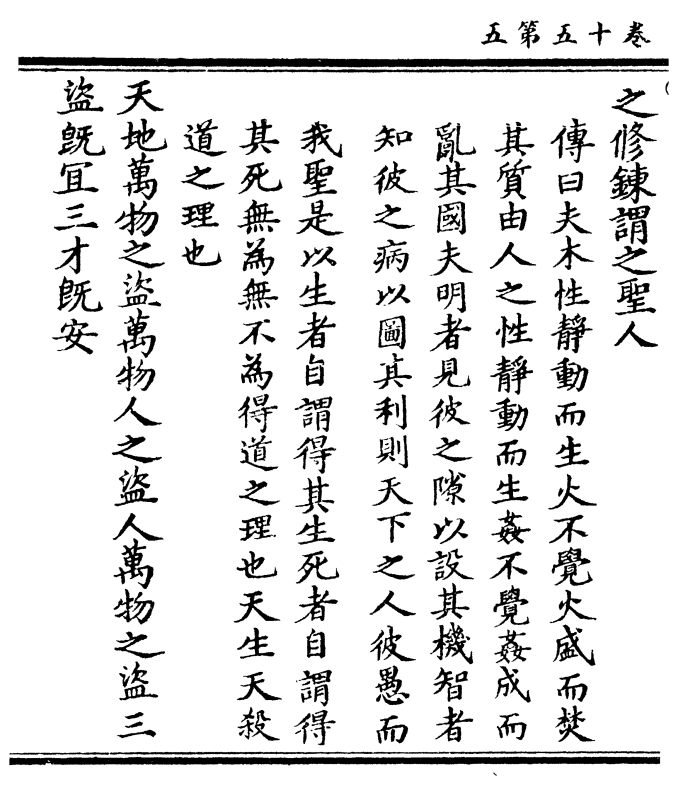 卷十五第五
之修鍊謂之聖人
傳曰夫木性靜動而生火不覺火盛而焚
其質由人之性靜動而生姦不覺姦成而
亂其國夫明者見彼之隙以設其機智者
知彼之病以圖其利則天下之人彼愚而
我聖是以生者自謂得其生死者自謂得
其死無為無不為得道之理也天生天殺
道之理也
天地萬物之盜萬物人之盜人萬物之盜三
盜旣冝三才旣安